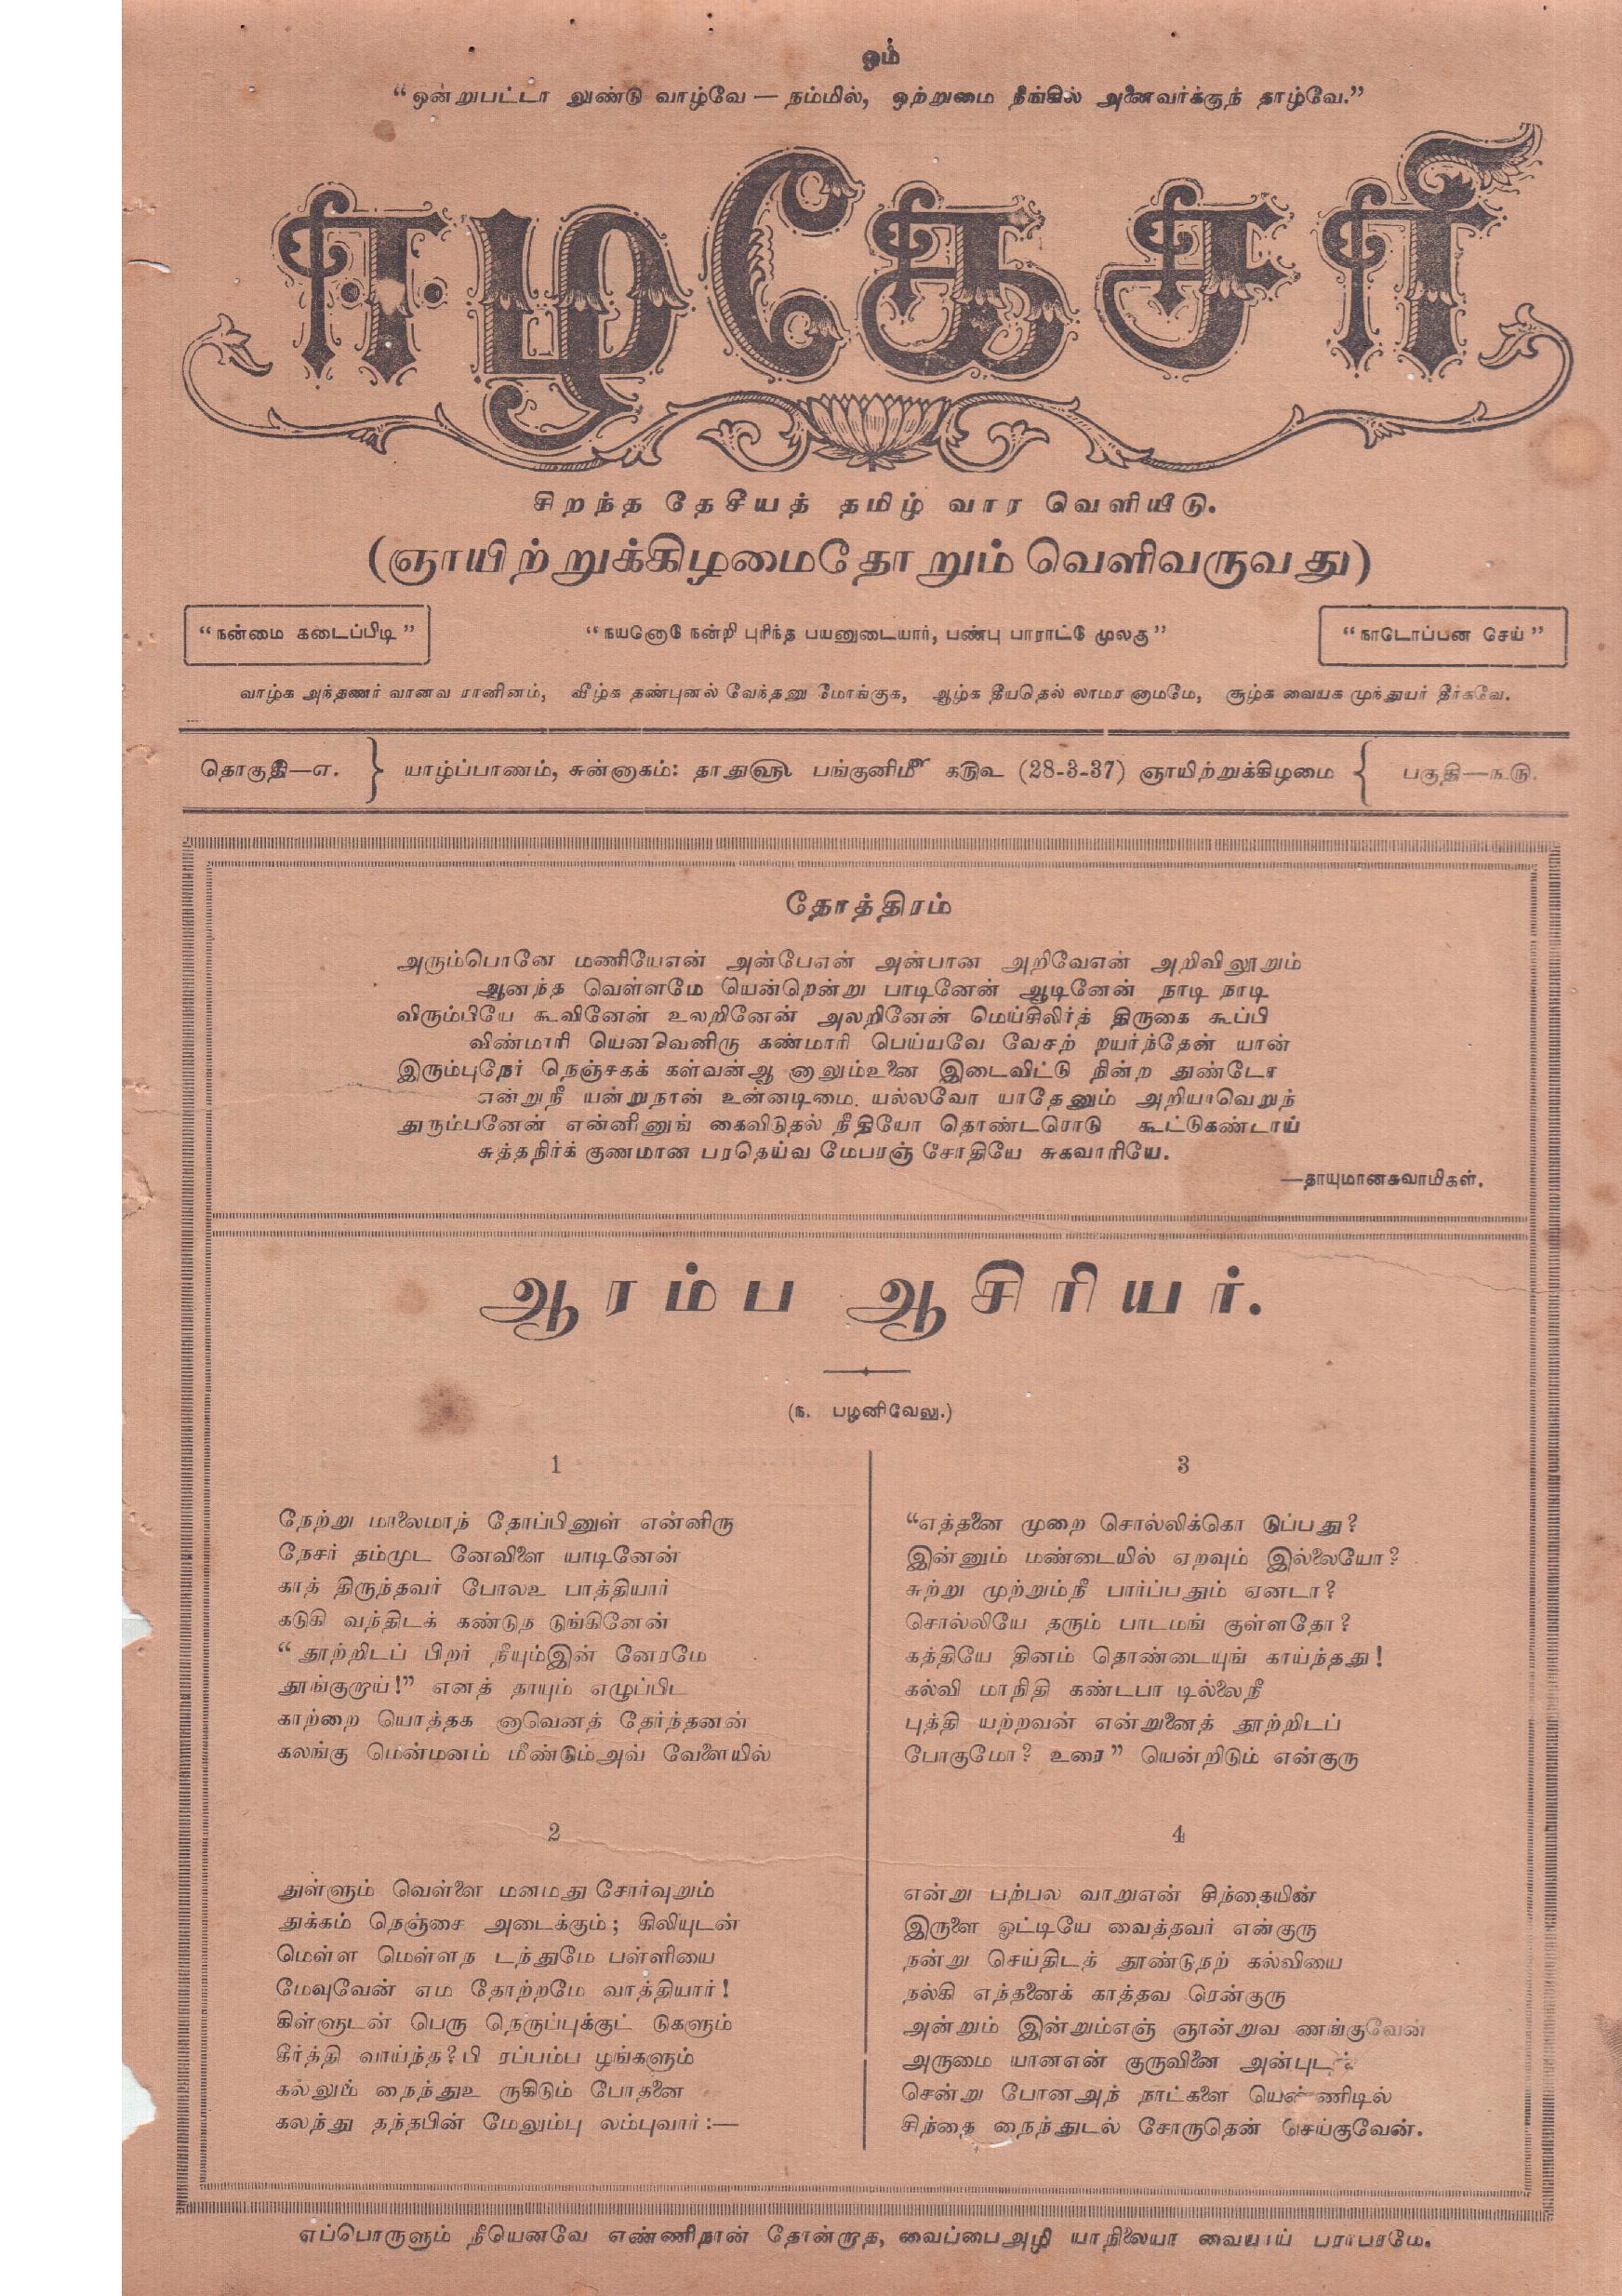 ஓம்
“ஒன்றுபட்டா லுண்டு வாழ்வே — நம்மில், ஒற்றுமை நீங்கில் அனைவர்க்குந் தாழ்வே.”
ஈழகேசரி
சிறந்த தேசீயத் தமிழ் வார வெளியீடு.
(ஞாயிற்றுக்கிழமைதோறும் வெளிவருவது)
“நன்மை கடைப்பிடி”
“நயனொடு நன்றி புரிந்த பயனுடையார், பண்பு பாராட்டு முலகு”
“நாடொப்பன செய்”
வாழ்க அந்தணர் வானவ ரானினம், வீழ்க தண்புனல் வேந்தனு மோங்குக, ஆழ்க தீயதெல் லாமர னாமமே, சூழ்க வையக முந்துயர் தீர்கவே.
தொகுதி—எ.
யாழ்ப்பாணம், சுன்னாகம்: தாது௵ பங்குனிமீ௴ கரு௨ (28-3-37) ஞாயிற்றுக்கிழமை
பகுதி—ந.ரு.
தோத்திரம்
அரும்பொனே மணியேஎன் அன்பேஎன் அன்பான அறிவேஎன் அறிவிலூறும்
ஆனந்த வெள்ளமே யென்றென்று பாடினேன் ஆடினேன் நாடி நாடி
விரும்பியே கூவினேன் உலறினேன் அலறினேன் மெய்சிலிர்த் திருகை கூப்பி
விண்மாரி யெனவெனிரு கண்மாரி பெய்யவே வேசற் றயர்ந்தேன் யான்
இரும்புநேர் நெஞ்சகக் கள்வன்ஆ னாலும்உனை இடைவிட்டு நின்ற துண்டோ
என்றுநீ யன்றுநான் உன்னடிமை யல்லவோ யாதேனும் அறியாவெறுந்
துரும்பனேன் என்னினுங் கைவிடுதல் நீதியோ தொண்டரொடு கூட்டுகண்டாய்
சுத்தநிர்க் குணமான பரதெய்வ மேபரஞ் சோதியே சுகவாரியே.
—தாயுமானசுவாமிகள்.
ஆரம்ப ஆசிரியர்.
(ந. பழனிவேலு.)
1
நேற்று மாலைமாந் தோப்பினுள் என்னிரு
நேசர் தம்முட னேவிளை யாடினேன்
காத் திருந்தவர் போலஉ பாத்தியார்
கடுகி வந்திடக் கண்டுந டுங்கினேன்
“தூற்றிடப் பிறர் நீயும்இன் னேரமே
தூங்குறாய்!” எனத் தாயும் எழுப்பிட
காற்றை யொத்தக னாவெனத் தேர்ந்தனன்
கலங்கு மென்மனம் மீண்டும்அவ் வேளையில்
2
துள்ளும் வெள்ளை மனமது சோர்வுறும்
துக்கம் நெஞ்சை அடைக்கும்; கிலியுடன்
மெள்ள மெள்ளந டந்துமே பள்ளியை
மேவுவேன் எம தோற்றமே வாத்தியார்!
கிள்ளுடன் பெரு நெருப்புக்குட் டுகளும்
கீர்த்தி வாய்ந்த?பி ரப்பம்ப ழங்களும்
கல்லும் நைந்துஉ ருகிடும் போதனை
கலந்து தந்தபின் மேலும்பு லம்புவார்:—
3
“எத்தனை முறை சொல்லிக்கொ டுப்பது?
இன்னும் மண்டையில் ஏறவும் இல்லையோ?
சுற்று முற்றும்நீ பார்ப்பதும் ஏனடா?
சொல்லியே தரும் பாடமங் குள்ளதோ?
கத்தியே தினம் தொண்டையுங் காய்ந்தது!
கல்வி மாநிதி கண்டபா டில்லைநீ
புத்தி யற்றவன் என்றுனைத் தூற்றிடப்
போகுமோ? உரை” யென்றிடும் என்குரு
4
என்று பற்பல வாறுஎன் சிந்தையின்
இருளை ஓட்டியே வைத்தவர் என்குரு
நன்று செய்திடத் தூண்டுநற் கல்வியை
நல்கி எந்தனைக் காத்தவ ரென்குரு
அன்றும் இன்றும்எஞ் ஞான்றுவ ணங்குவேன்
அருமை யானஎன் குருவினை அன்புடன்
சென்று போனஅந் நாட்களை யெண்ணிடில்
சிந்தை நைந்துடல் சோருதென் செய்குவேன்.
எப்பொருளும் நீயெனவே எண்ணிநான் தோன்றாத, வைப்பைஅழி யாநிலையா வையாய் பராபரமே.